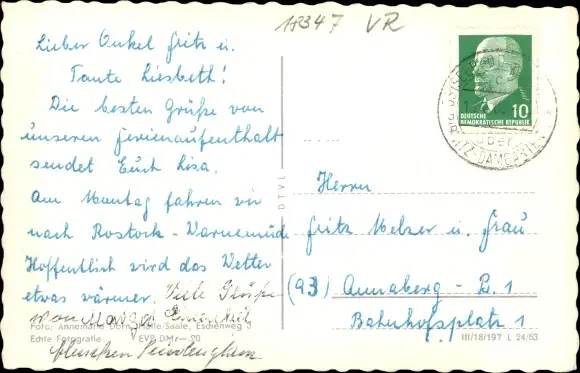 18347 VR
Lieber Onkel Fritz u.
Tante Liesbeth!
Die besten Grüße von
unseren Ferienaufenthalt
sendet Euch Lisa.
Am Montag fahren wir
nach Rostock - Warnemünde
Hoffentlich wird das Wetter
etwas wärmer. Viele Grüße
von
Foto: Annemarie Dorn, Halle/Saale, Eschenweg 3
Echte Fotografie EVP DM 20
DTVE
10
DEUTSCHE
DEMOKRATISCHE REPUBLIK
über
RIBNITZ-DAMGARTEN
Herrn
Fritz Melzer u. Frau
(93) Annaberg - B. 1
Bahnhofsplatz 1
III/18/197 L 24/53